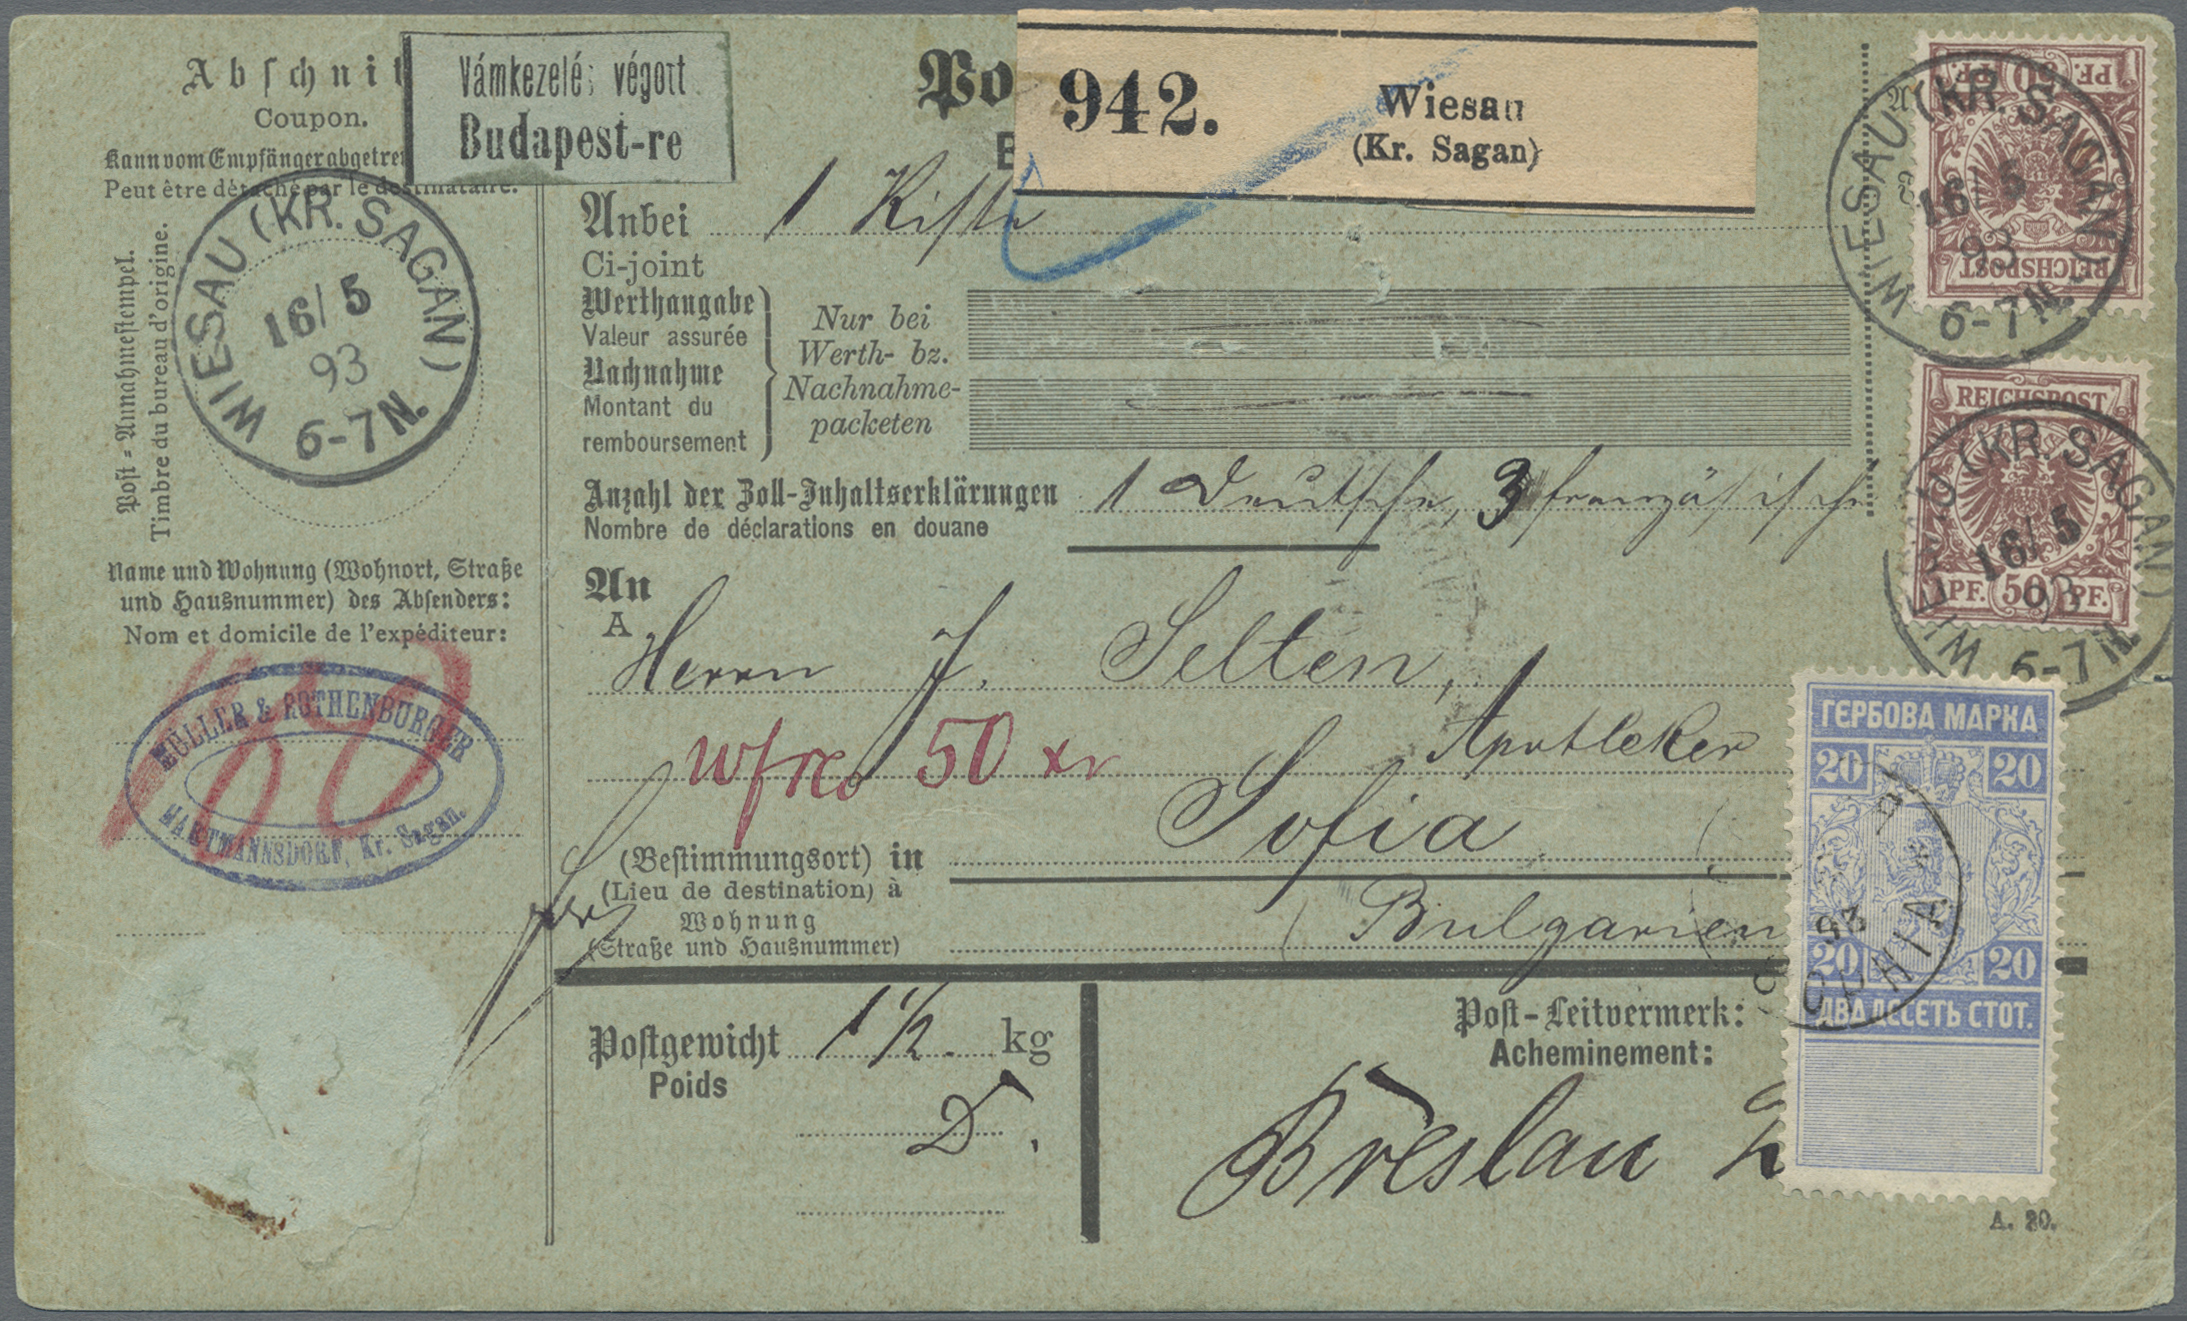 Abschnit
Coupon.
Kann vom Empfänger abgetre
Peut être détaché par le destinataire.
Vámkezelés végett
Budapest-re
Po
942.
Wiesau
(Kr. Sagan)
Post-Annahmestempel.
Timbre du bureau d'origine.
WIESAU (KR. SAGAN)
16/5
93
6-7N.
Anbei 1 Kiste
Ci-joint
Werthangabe
Valeur assurée
Nachnahme
Montant du
remboursement
Nur bei
Werth- bz.
Nachnahme-
packeten
Anzahl der Zoll-Inhaltserklärungen 1 Deutsche, 3 französische
Nombre de déclarations en douane
Name und Wohnung (Wohnort, Straße
und Hausnummer) des Absenders:
Nom et domicile de l'expéditeur:
MÜLLER & ROTHENBURGER
HARTMANNSDORF, Kr. Sagan.
An
A
Herrn J. Selten,
Apotheker
50 xr
Sofia
(Bestimmungsort) in
(Lieu de destination) à
Wohnung
(Straße und Hausnummer)
(Bulgarien
Postgewicht 1 1/2. kg
Poids
Post-Leitvermerk:
Acheminement:
Breslau 2
PF. 50 PF.
REICHSPOST
WIESAU (KR. SAGAN)
16/5
93
6-7N.
REICHSPOST
PF. 50 PF.
WIESAU (KR. SAGAN)
16/5
93
6-7N.
ГЕРБОВА МАРКА
20 20
93
20 20
ДВАДЕСЕТЬ СТОТ.
A. 20.